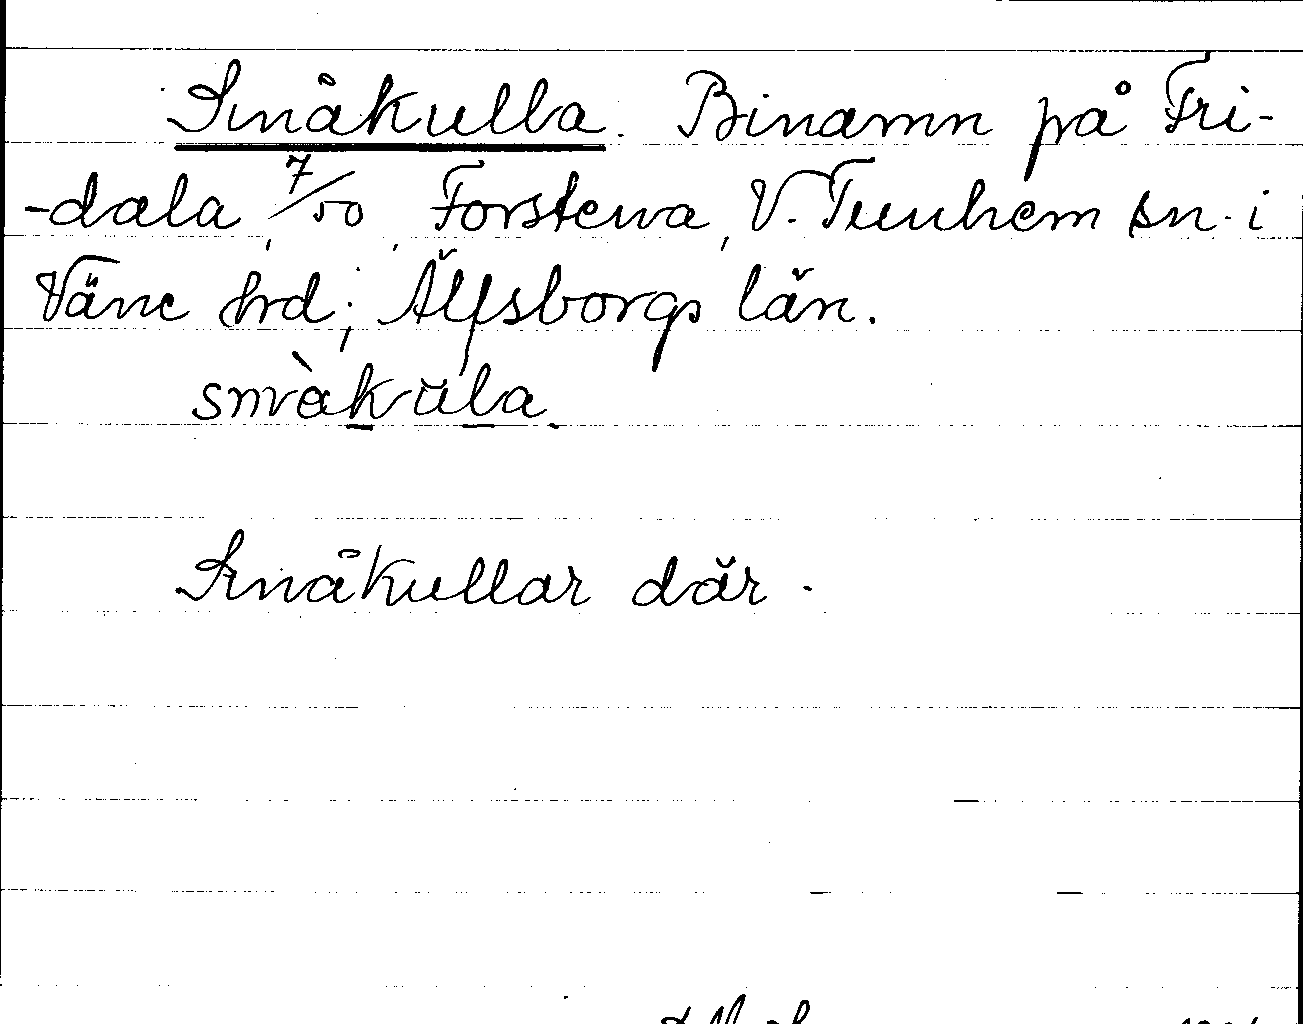 Småkulla. Binamn på Fri-
-dala, 7/50, Forstena, V. Tunhem sn. i
Väne hrd; Älfsborgs län.
småkula
Småkullar där.